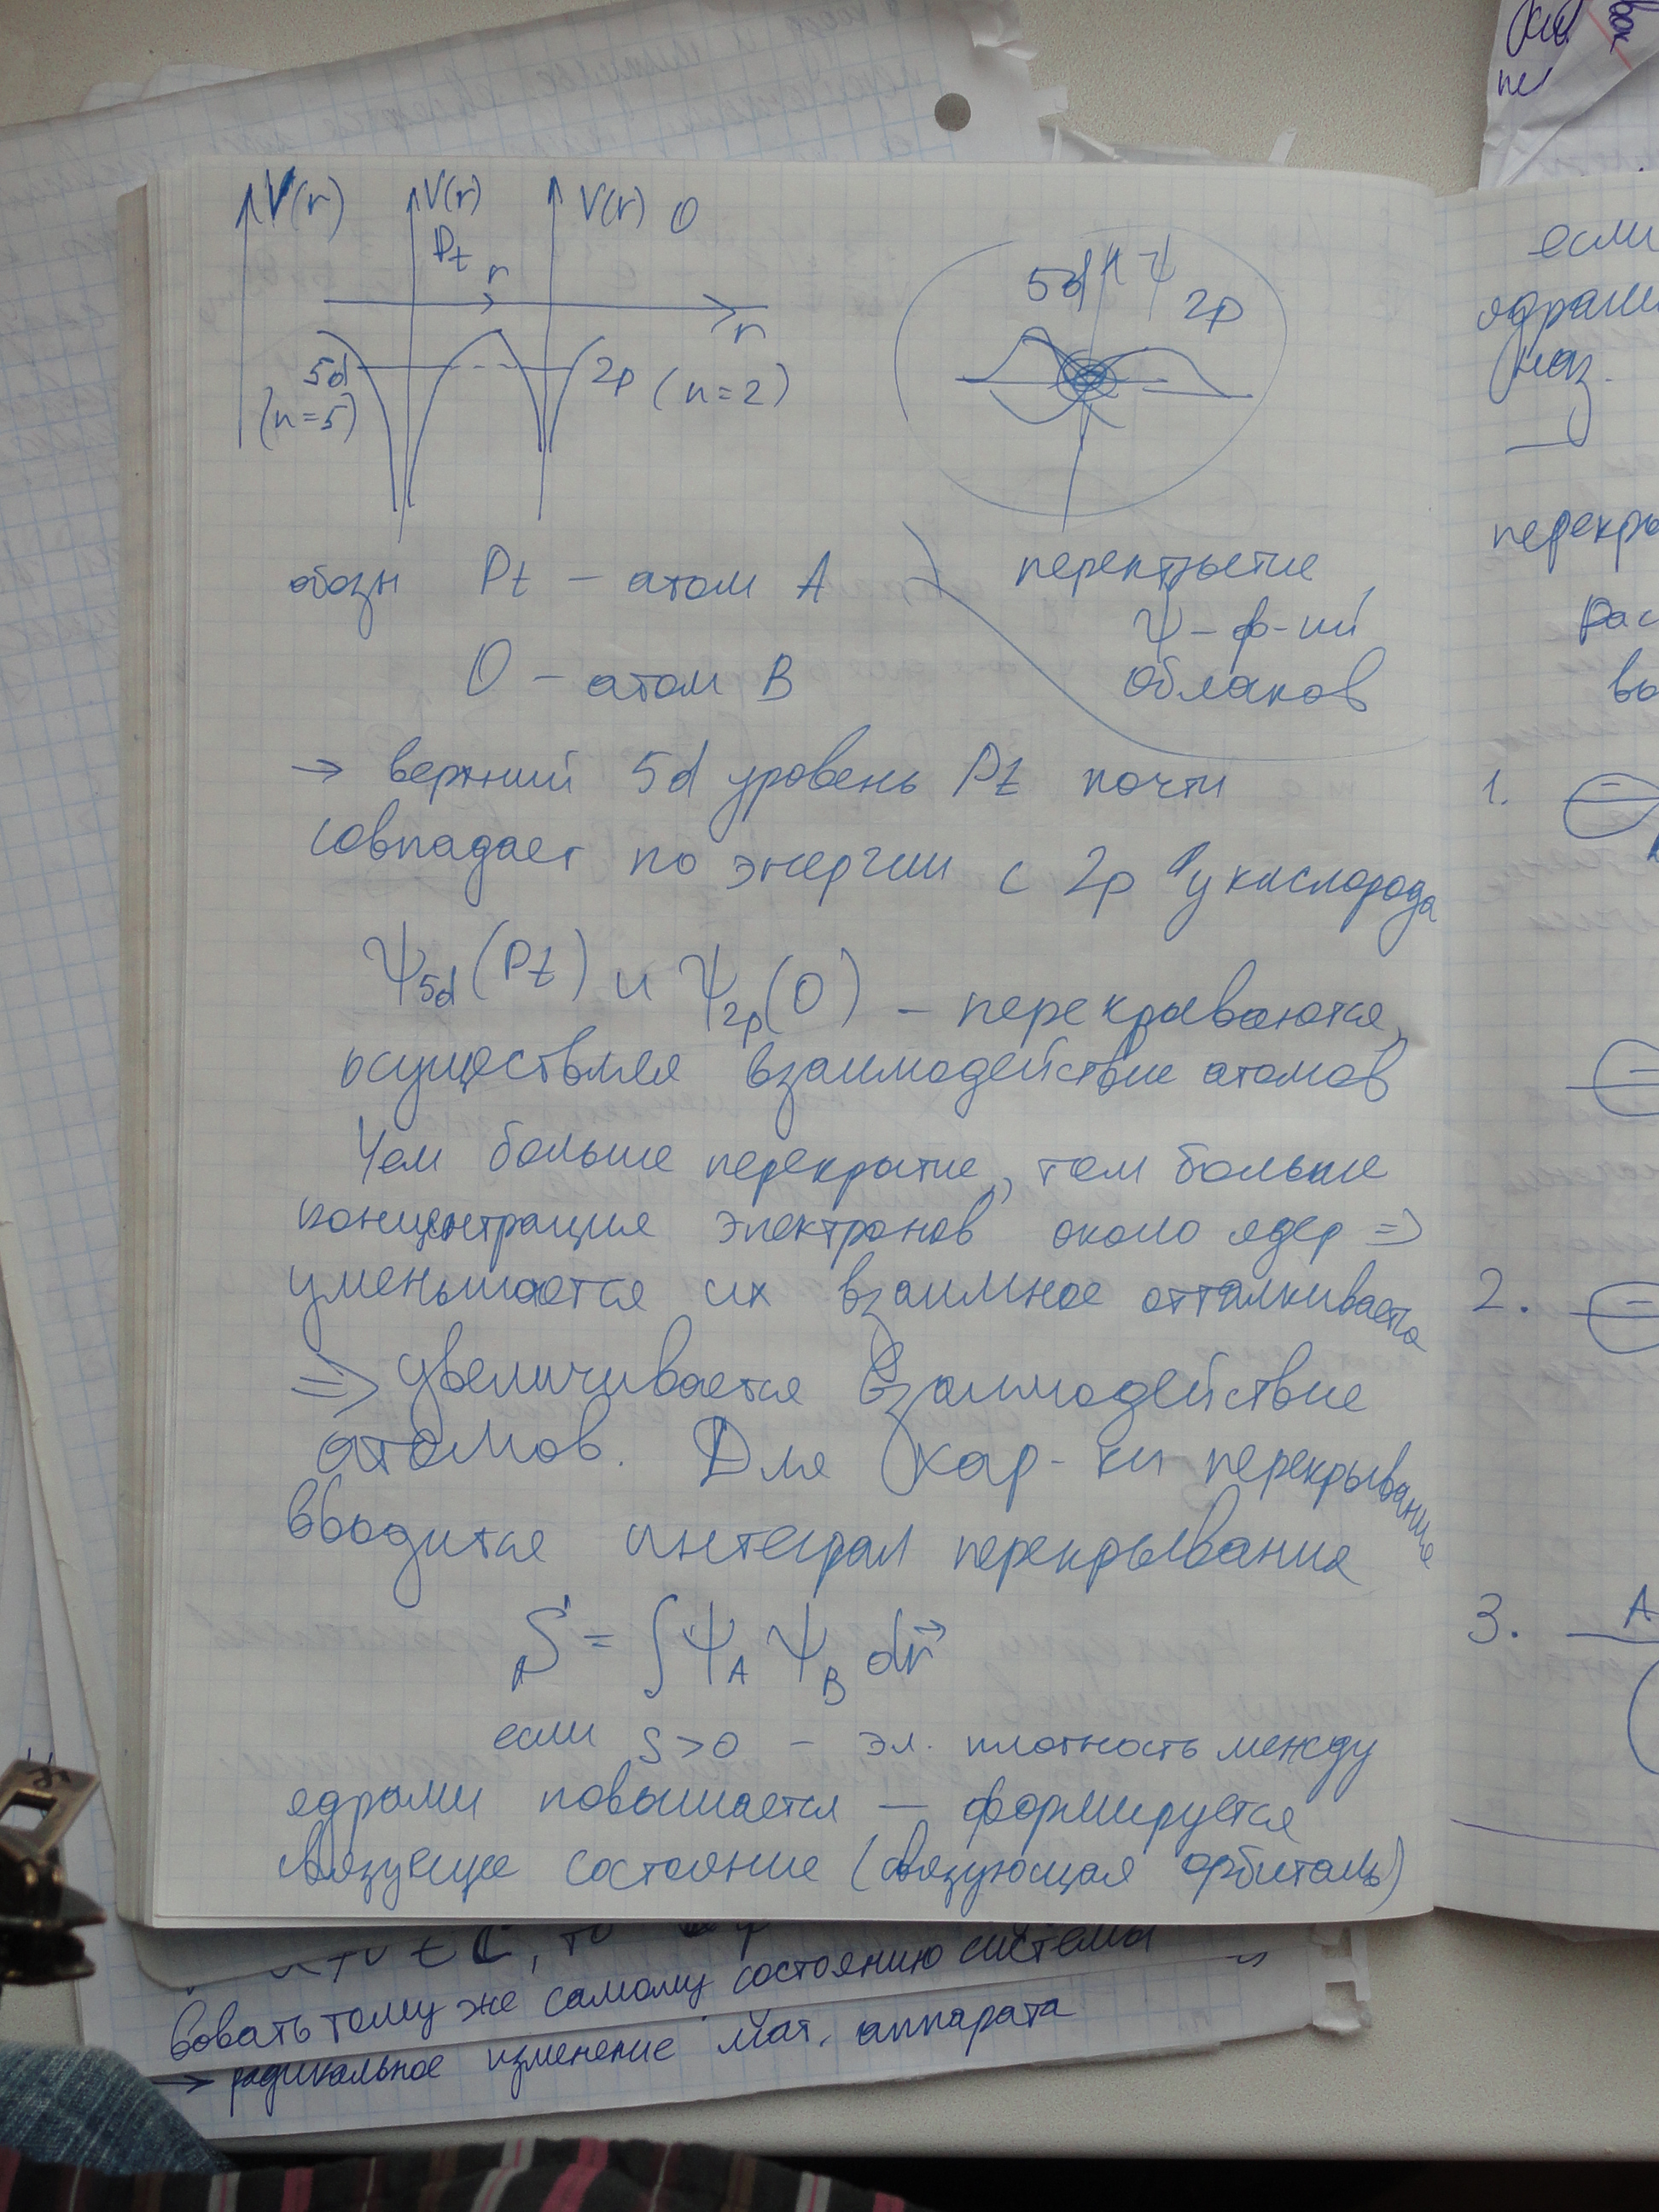 V(r) V(r) V(r) O
Pt r
r
5d 2p (n=2)
(n=5)
5d ψ 2p
обозн Pt – атом А
О – атом В
перекрытие
ψ-ф-ий
облаков
→ верхний 5d уровень Pt почти
совпадает по энергии с 2p у кислорода
ψ5d(Pt) и ψ2p(O) – перекрываются,
осуществляя взаимодействие атомов
Чем больше перекрытие, тем больше
концентрация электронов около ядер ⇒
уменьшается их взаимное отталкивается
⇒ увеличивается взаимодействие
атомов. Для хар-ки перекрывания
вводится интеграл перекрывания
S = ∫ψ_A ψ_B dr⃗
если S>0 – эл. плотность между
ядрами повышается – формируется
связующее состояние (связующая орбиталь)
если
ядрами
наз.
перекры
рас
1.
2.
3. А
вовать тому же самому состоянию системы
→ радикальное изменение мат. аппарата